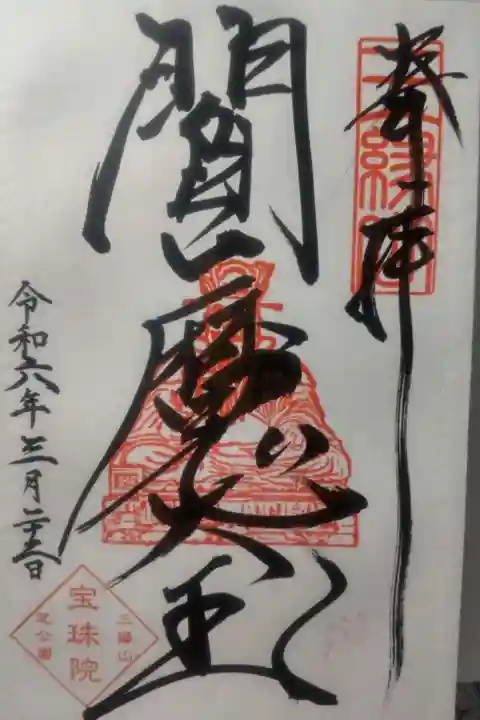 奉拝
三縁山
閻魔大王
令和六年三月二十日
三縁山
宝珠院
芝公園